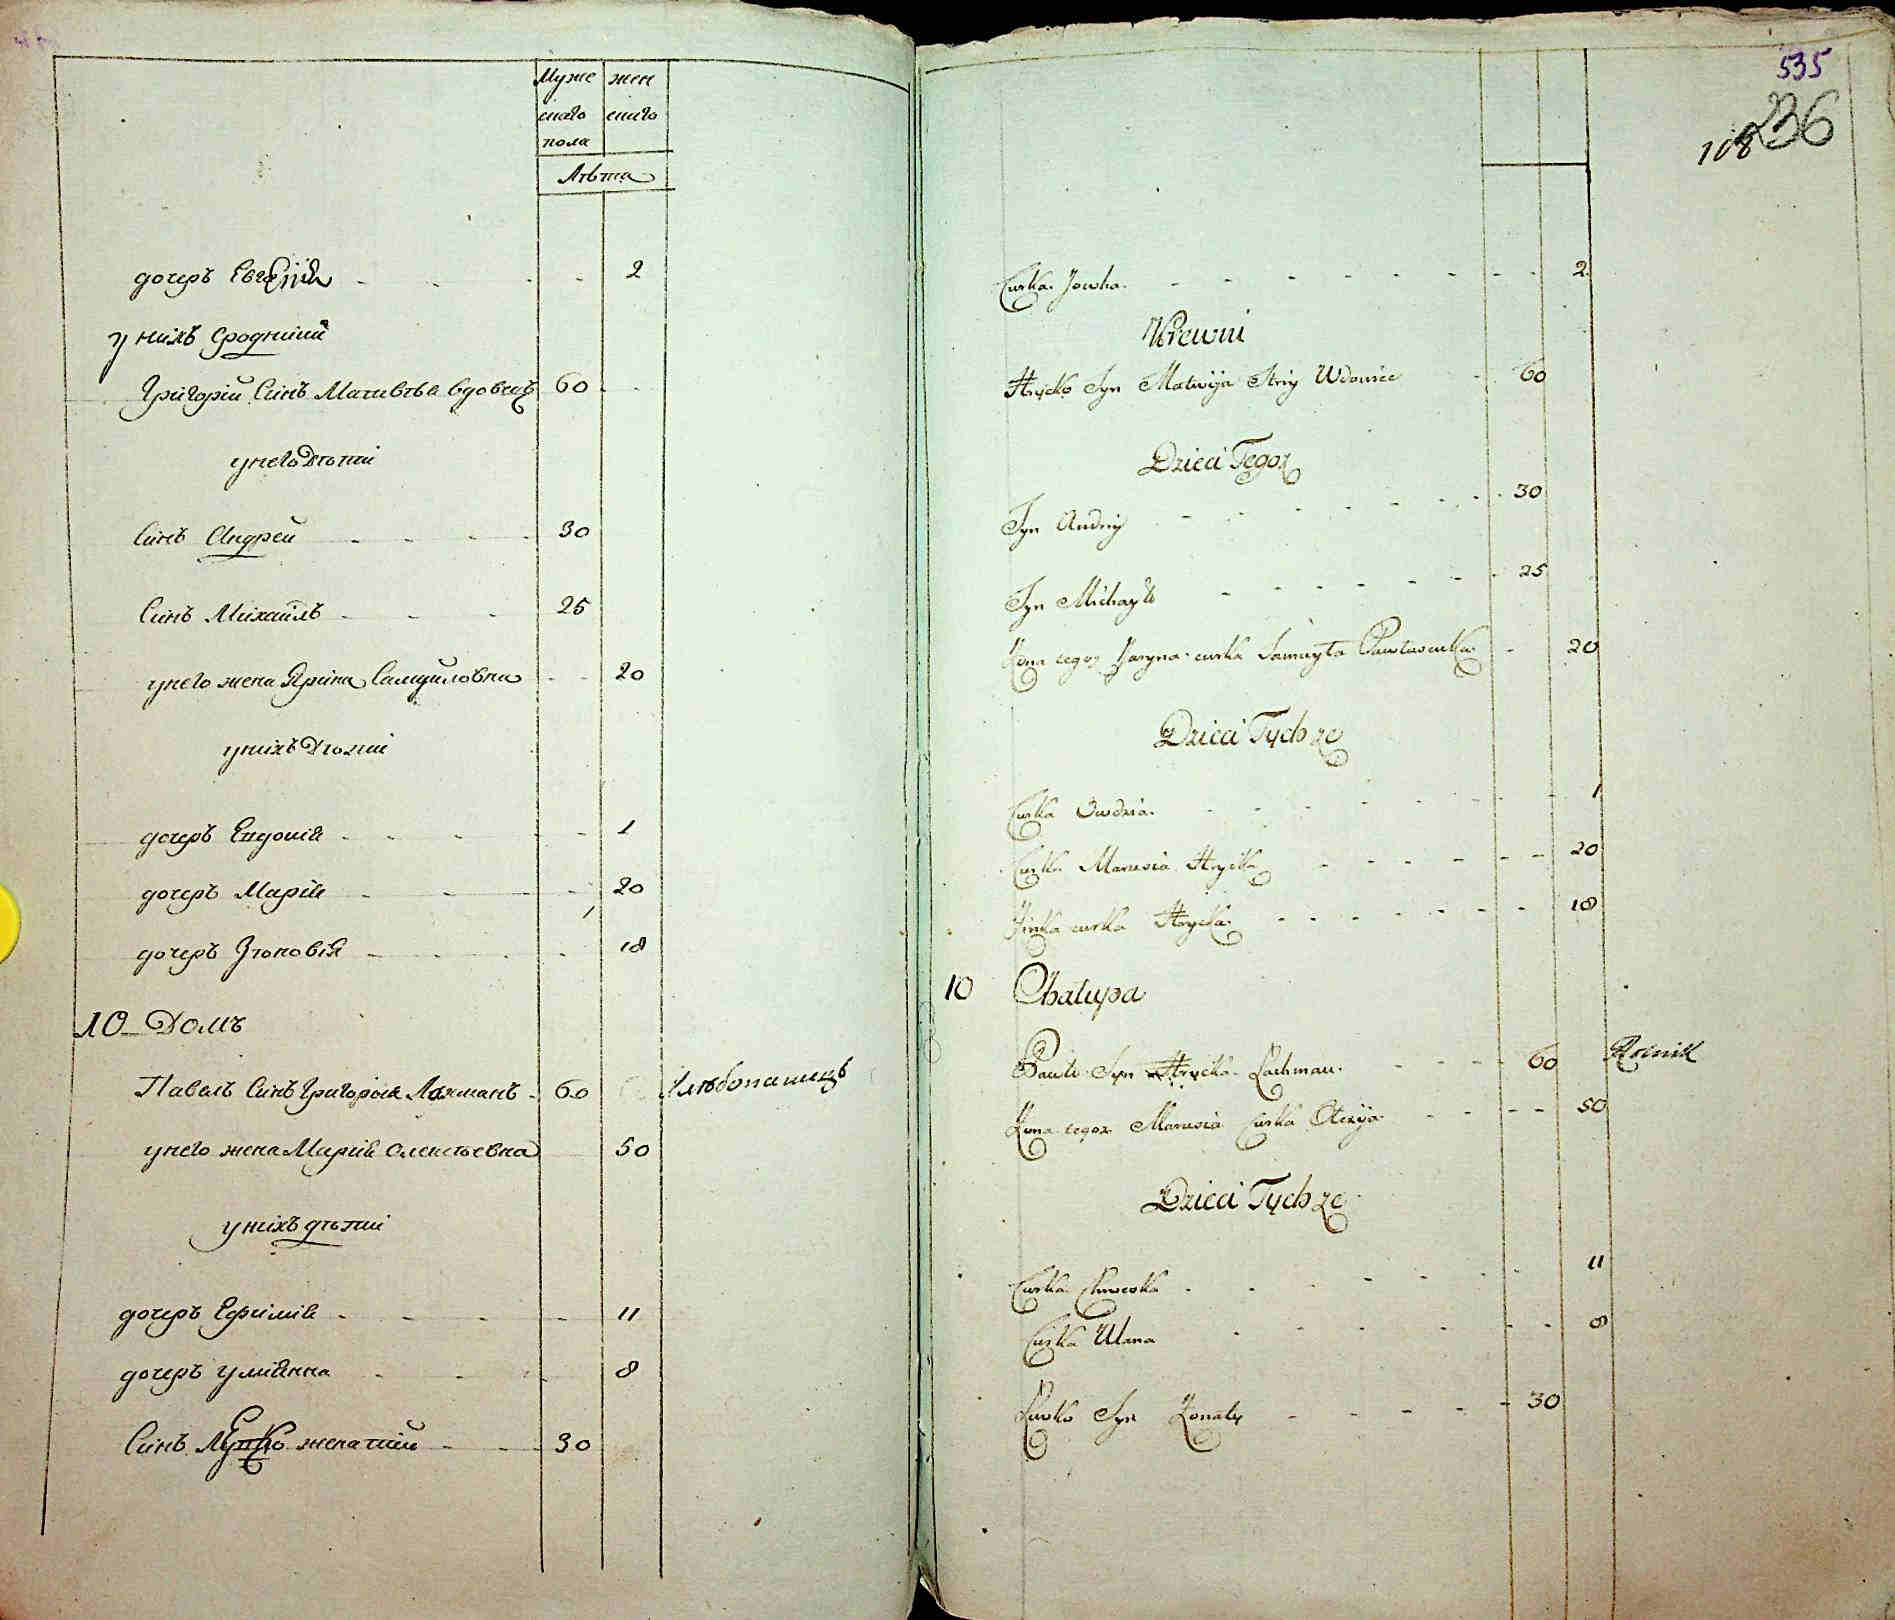 Муже жен
скаго скаго
пола
Лѣта
дочеръ Евгенія 2
у нихъ сродники
Григорій Синъ Матвѣва вдовецъ 60
у него дѣти
Синъ Андрей 30
Синъ Михаилъ 25
у него жена Ярина Самуиловна 20
у нихъ дѣти
дочеръ Евдокія 1
дочеръ Марія 20
дочеръ Зѣновія 18
10 Домъ
Павелъ Синъ Григорія Лахманъ 60 хлѣбопашецъ
у него жена Марія Олексѣевна 50
у нихъ дѣти
дочеръ Ефимія 11
дочеръ Улиянна 8
Синъ Луцко женатій 30
535
236
108
Curka Jowha 2
Krewni
Hrycko Syn Matwija Stryj Wdowiec 60
Dzieci Tegoz
Syn Andrij 30
Syn Michayło 25
Zona tegoz Jaryna curka Samuyła 20
Dzieci Tychze
Curka Owdzia 1
Curka Marusia Hrycka 20
Zinka curka Hrycka 18
10 Chałupa
Pawło Syn Hrycka Lachman 60 Rolnik
Zona tegoz Marusia Curka Olexija 50
Dzieci Tychze
Curka 11
Curka Ulana 8
Syn Zonaty 30